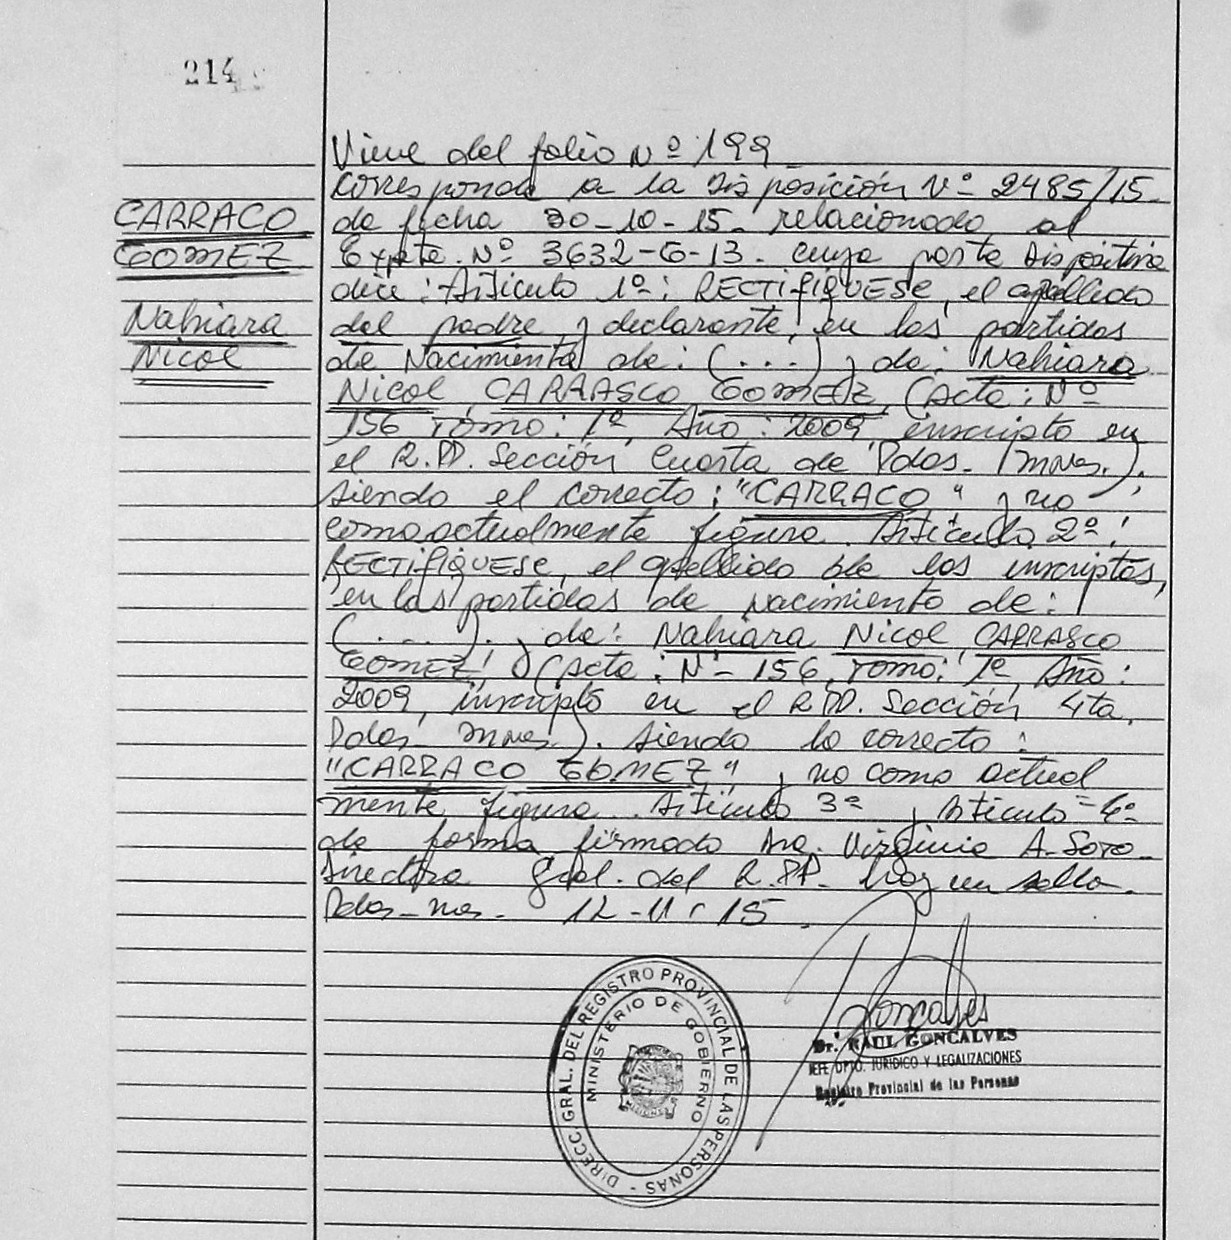 214
Viene del folio Nº 199
Corresponde a la Disposición Nº 2485/15
CARRACO
de fecha 30-10-15 relacionado al
GOMEZ
Expte. Nº 3632-G-13. cuya parte Dispositiva
dice: Artículo 1º: RECTIFIQUESE, el apellido
Nahiara
del padre y declarante, en las partidas
Nicol
de Nacimiento de: (...) y de: Nahiara
Nicol CARRASCO GOMEZ, (Acta: Nº
156 Tomo: 1º, Año: 2009, inscripto en
el R.PP. Sección Cuarta de Pdas. Mnes.).
siendo el correcto: "CARRACO" y no
como actualmente figura. Artículo 2º:
RECTIFIQUESE, el apellido de los inscriptos,
en las partidas de nacimiento de:
(....). y de: Nahiara Nicol CARRASCO
GOMEZ, (Acta: Nº 156, Tomo: 1º, Año:
2009, inscripto en el R.PP. Sección 4ta.
Pdas Mnes). siendo lo correcto:
"CARRACO GOMEZ", y no como actual
mente figura. Artículo 3º y Artículo 4º
de forma firmado Virginia A. Soto
Directora Gral. del R.PP. hay un sello.
Pdas-Mnes. 12-11-15
DIRECC. GRAL. DEL REGISTRO PROVINCIAL DE LAS PERSONAS -
MINISTERIO DE GOBIERNO
MISIONES
Goncalves
Dr. RAUL GONCALVES
JEFE DPTO. JURIDICO Y LEGALIZACIONES
Registro Provincial de las Personas